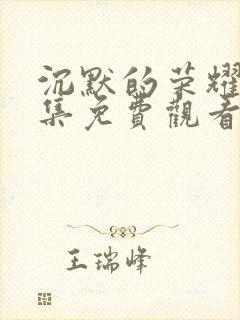 沉默的荣耀
集免費觀看
王瑞峰